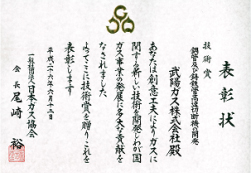 表彰状
技術賞
鋼管及び鋳鉄管用溝切断機の開発
武陽ガス株式会社殿
あなたは創意工夫によりガスに
関する新しい技術を開発しわが国
ガス事業の発展に多大な貢献を
なされました
よってここに技術賞を贈りこれを
表彰します
平成二十六年六月十三日
一般社団法人日本ガス協会
会長 尾崎 裕